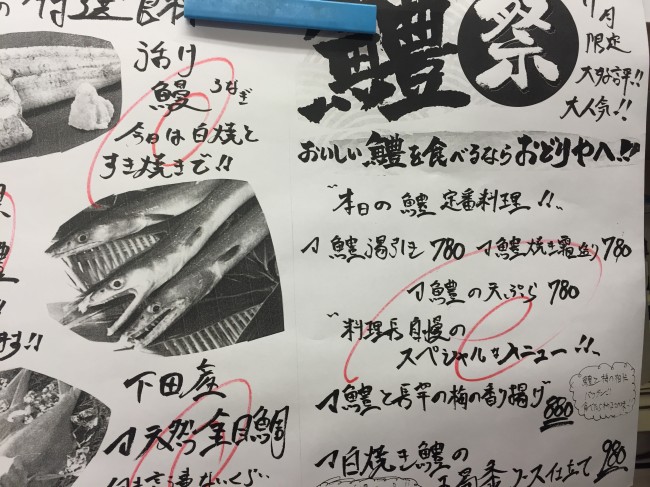 の特選食材
活け
鰻 うなぎ
今日は白焼と
すき焼きで!!
下田産
天然の金目鯛
鱧
祭
月
限定
大好評!!
大人気!!
おいしい鱧を食べるならおどりやへ!!
"本日の鱧 定番料理!!"
鱧湯引き 780 鱧焼き霜造り 780
鱧の天ぷら 780
"料理長自慢の
スペシャルなメニュー!!"
鱧と長芋の梅の香り揚げ 880
白焼き鱧の
ソース仕立て 980